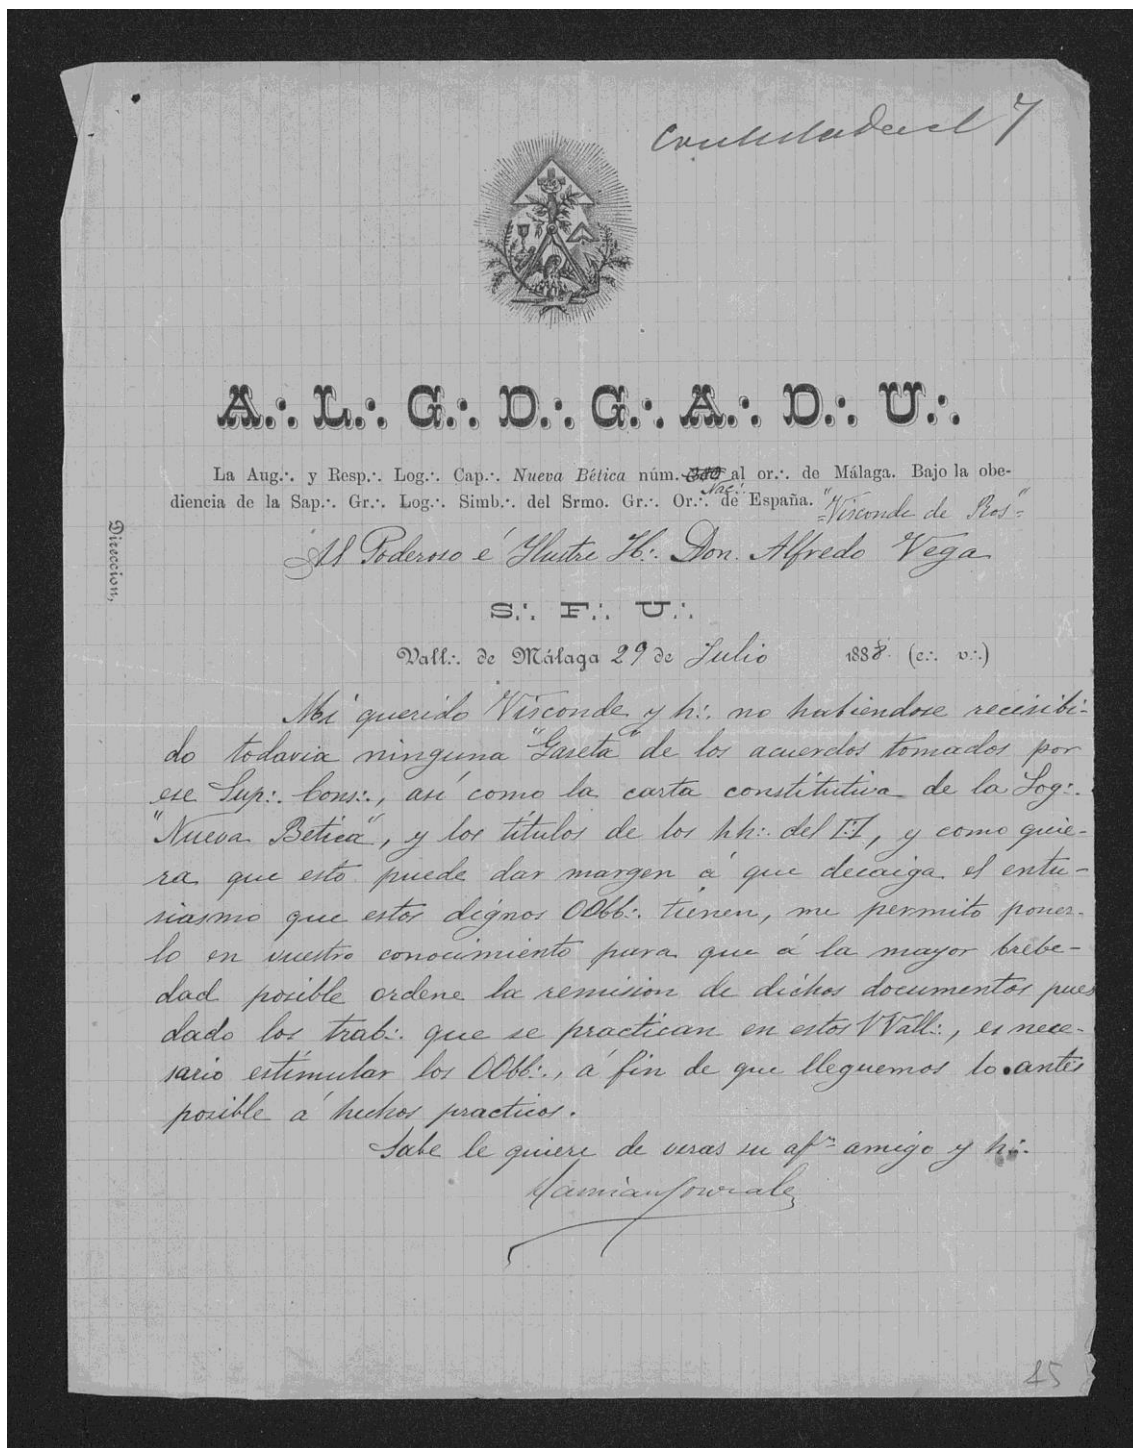 Contestada el 7
A.·. L.·. G.·. D.·. G.·. A.·. D.·. U.·.
La Aug.·. y Resp.·. Log.·. Cap.·. Nueva Bética núm. al or.·. de Málaga. Bajo la obe-
Nac.·.
diencia de la Sap.·. Gr.·. Log.·. Simb.·. del Srmo. Gr.·. Or.·. de España.
"Visconde de Ros"
Al Poderoso é Ilustre H.·. Don. Alfredo Vega
Direccion,
S.·. F.·. U.·.
Vall.·. de Málaga 29 de Julio 1888. (e.·. v.·.)
Mi querido Visconde y h.·. no habiendose recisibi-
do todavia ninguna "Gaseta" de los acuerdos tomados por
ese Sup.·. Cons.·., así como la carta constitutiva de la Log.·.
"Nueva Betica", y los títulos de los hh.·. del , y como quie-
ra que esto puede dar margen á que decaiga el entu-
siasmo que estos dignos OObb.·. tienen, me permito poner-
lo en vuestro conocimiento para que á la mayor brebe-
dad posible ordene la remision de dichos documentos pues
dado los trab.·. que se practican en estos VVall.·., es nece-
sario estimular los OObb.·., á fin de que lleguemos lo antes
posible á hechos practicos.
Sabe le quiere de veras su afmo amigo y h.·.
Damian Gonzalez
45